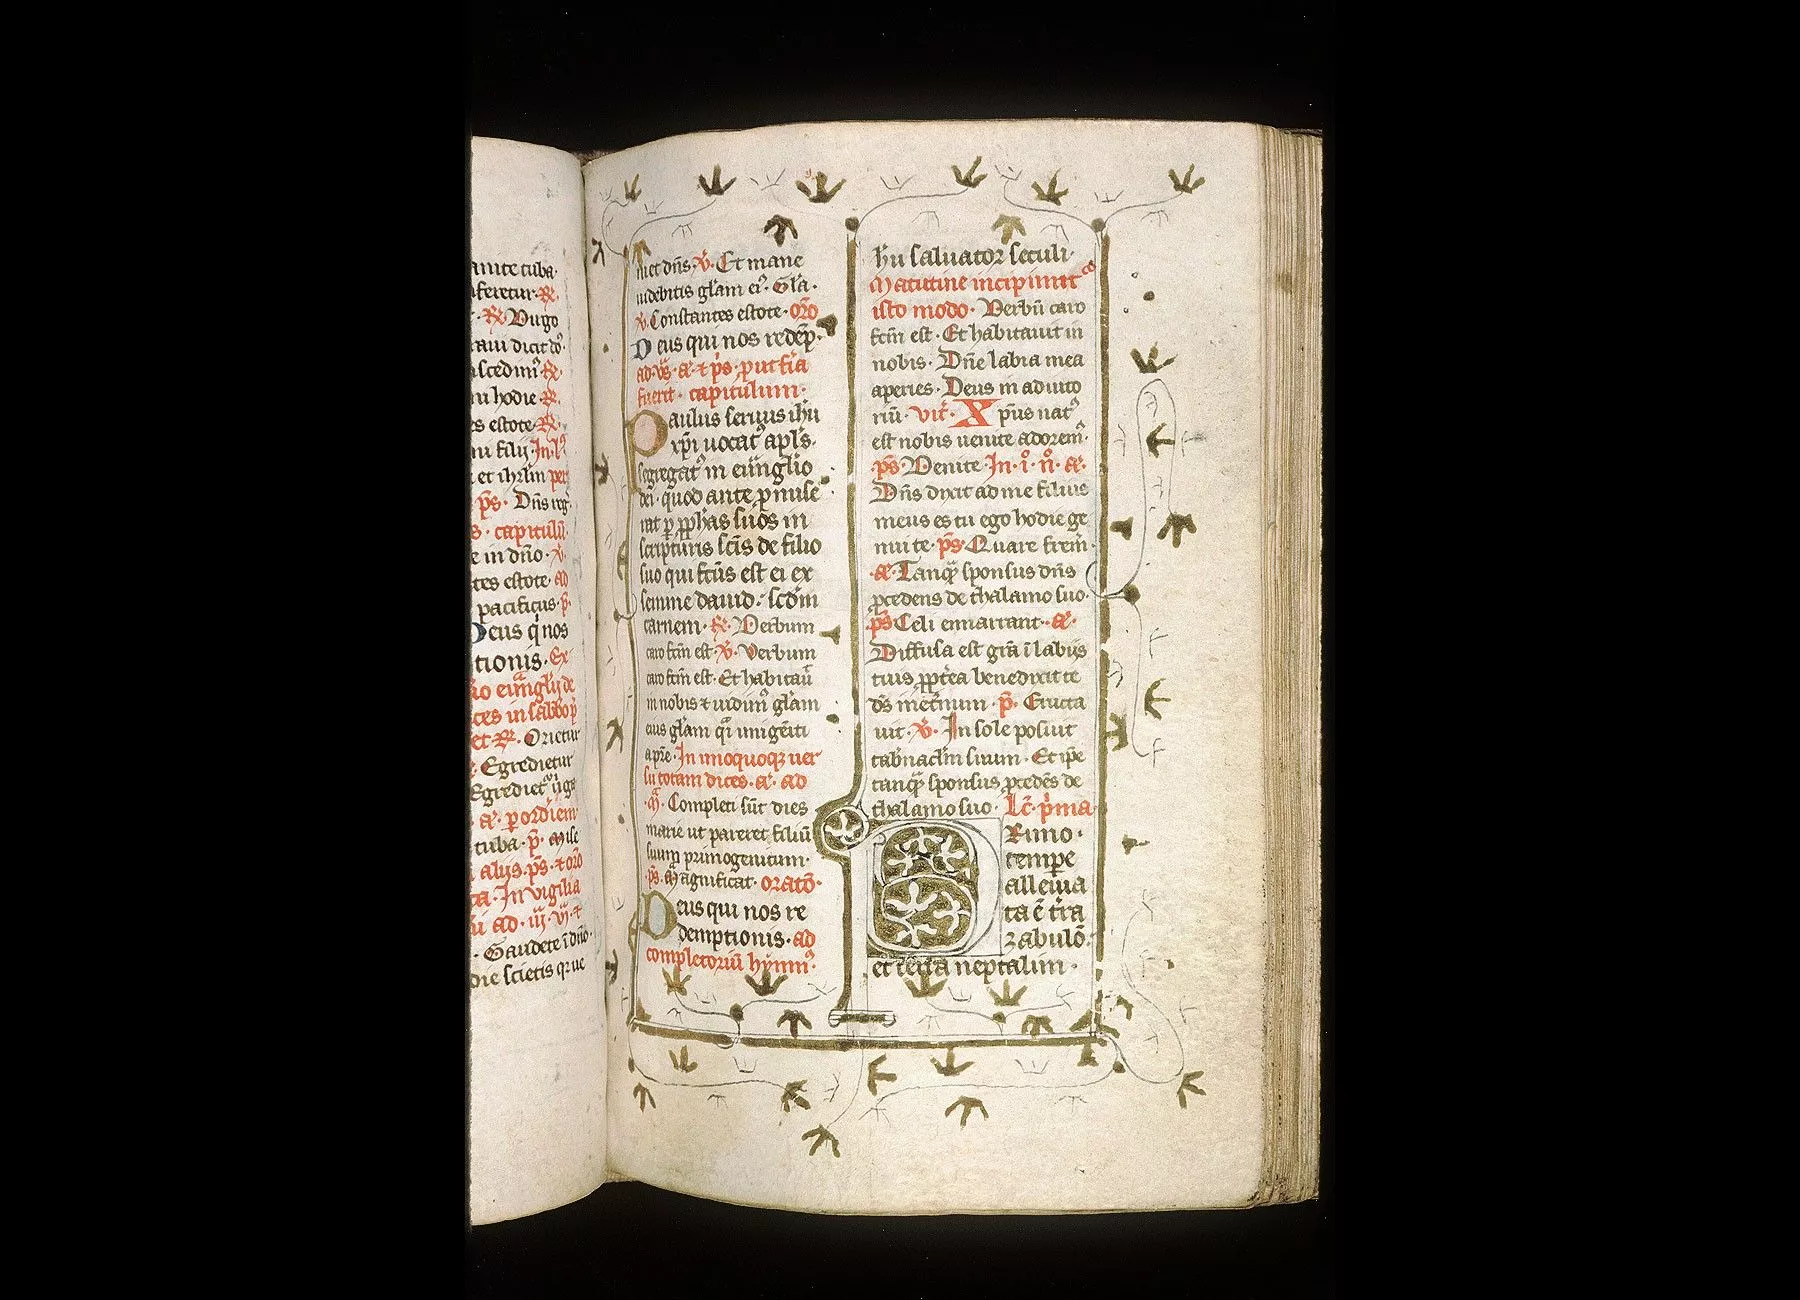 amte tuba·
feretur· ℟·
· ℟· Virgo
ram dicit dō·
scedim᷑ ℟·
m hodie ℟·
s estote· ℟·
m filij In·l'
et ihrlm per
ps· Dn̄s reg
s· capitulū
e in dn̄o· v̇·
tes estote· ad
pacificus· p̄·
Deus q̇ nos
tionis· Ex
io eūngłij de
ces in sabb̄o p̄
et ℟· Orietur
Egredietur
Egrediet᷑ v̇g̾
· a᷑· p ordiem
tuba· p̄· Mise
alijs· ps̄· ⁊ orō
ta· In vigilia
ad· iij· vj· ⁊
· Gaudete ī dn̄o·
die scietis q̇ ue
niet dn̄s· v̇· Et mane
uidebitis gl̄am ei᷒· Gl̄a·
v̇· Constantes estote· orō
Deus qui nos redēp·
ad· v̄s· a᷑· ⁊ ps̄· p̱ut sr̄a
fuerit· capitulum·
Paulus seruus ihū
xp̄i uocat᷒ apl̄s·
segregat᷒ in eūuglio
dei· quod ante p̱mise
rat p̱ p̱phās suos in
scripturis scīs de filio
suo qui fc̄us est ei ex
semine dauid· scd̄m
carnem· ℟· Verbum
caro fc̄m est· v̇· Verbum
caro fc̄m est· Et habitaū
in nobis ⁊ uidim᷒ gl̄am
eius gl̄am q̄i unigēiti
a p̄re· In unoquoqꝫ uer
su totam dices· a᷑· ad
·m̄· Completi sūt dies
marie ut pareret filiū
suum primogenitum·
ps̄· Magnificat· oratō·
Deus qui nos re
demptionis· ad
completoriū hymn᷒·
h̄u saluator seculi·
Matutine incipiunt co
isto modo· Verbū caro
fc̄m est· Et habitauit in
nobis· Dn̄e labia mea
aperies· Deus in adiuto
riū· vit̄· Xpūs nat᷒
est nobis uenite adorem᷒·
ps̄· Venite· In· i̊· n̊· a᷑·
Dn̄s dixit ad me filius
meus es tu ego hodie ge
nui te· ps̄· Quare frem̄·
·a᷑· Tanq̄ sponsus dn̄s
p̱cedens de thalamo suo·
ps̄· Celi ennarrant· a᷑·
Diffusa est gr̄a ī labijs
tuis p̱pt̄ea benedixit te
d̄s inet̄num· p̄· Eructa
uit· v̇· In sole posuit
tab̄nac̄lm suum· Et ip̄e
tanq̄ sponsus p̱cedēs de
thalamo suo· Lc̄· p̄ma
Primo·
tempe
alleuia
ta ē t̄ra
zabulō·
et terra neptalim·